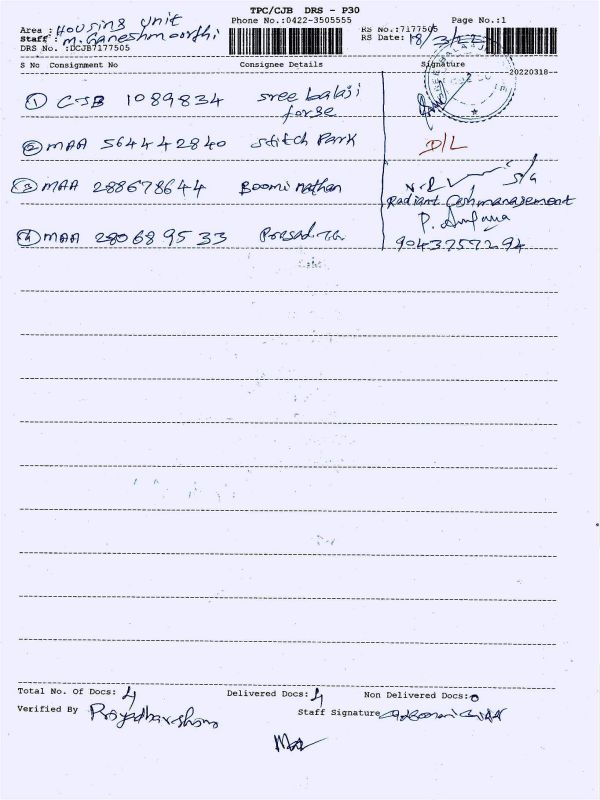 TPC/CJB DRS - P30
Area : Housing Unit
Phone No.:0422-3505555
RS No.:7177505
Page No.:1
Staff : M. Ganeshmoorthi
RS Date: 18/3/22
DRS No. :DCJB7177505
S No Consignment No
Consignee Details
Signature
-20220318-
① CJB 1089834
Sree balaji
forge
② MAA 564442840
Stitch Park
D/L
③ MAA 288678644
Boominathan
S/G
Radiant Cashmanagement
④ MAA 280689533
9043757294
Total No. Of Docs: 4
Delivered Docs: 4
Non Delivered Docs: 0
Verified By Priyadharshini
Staff Signature